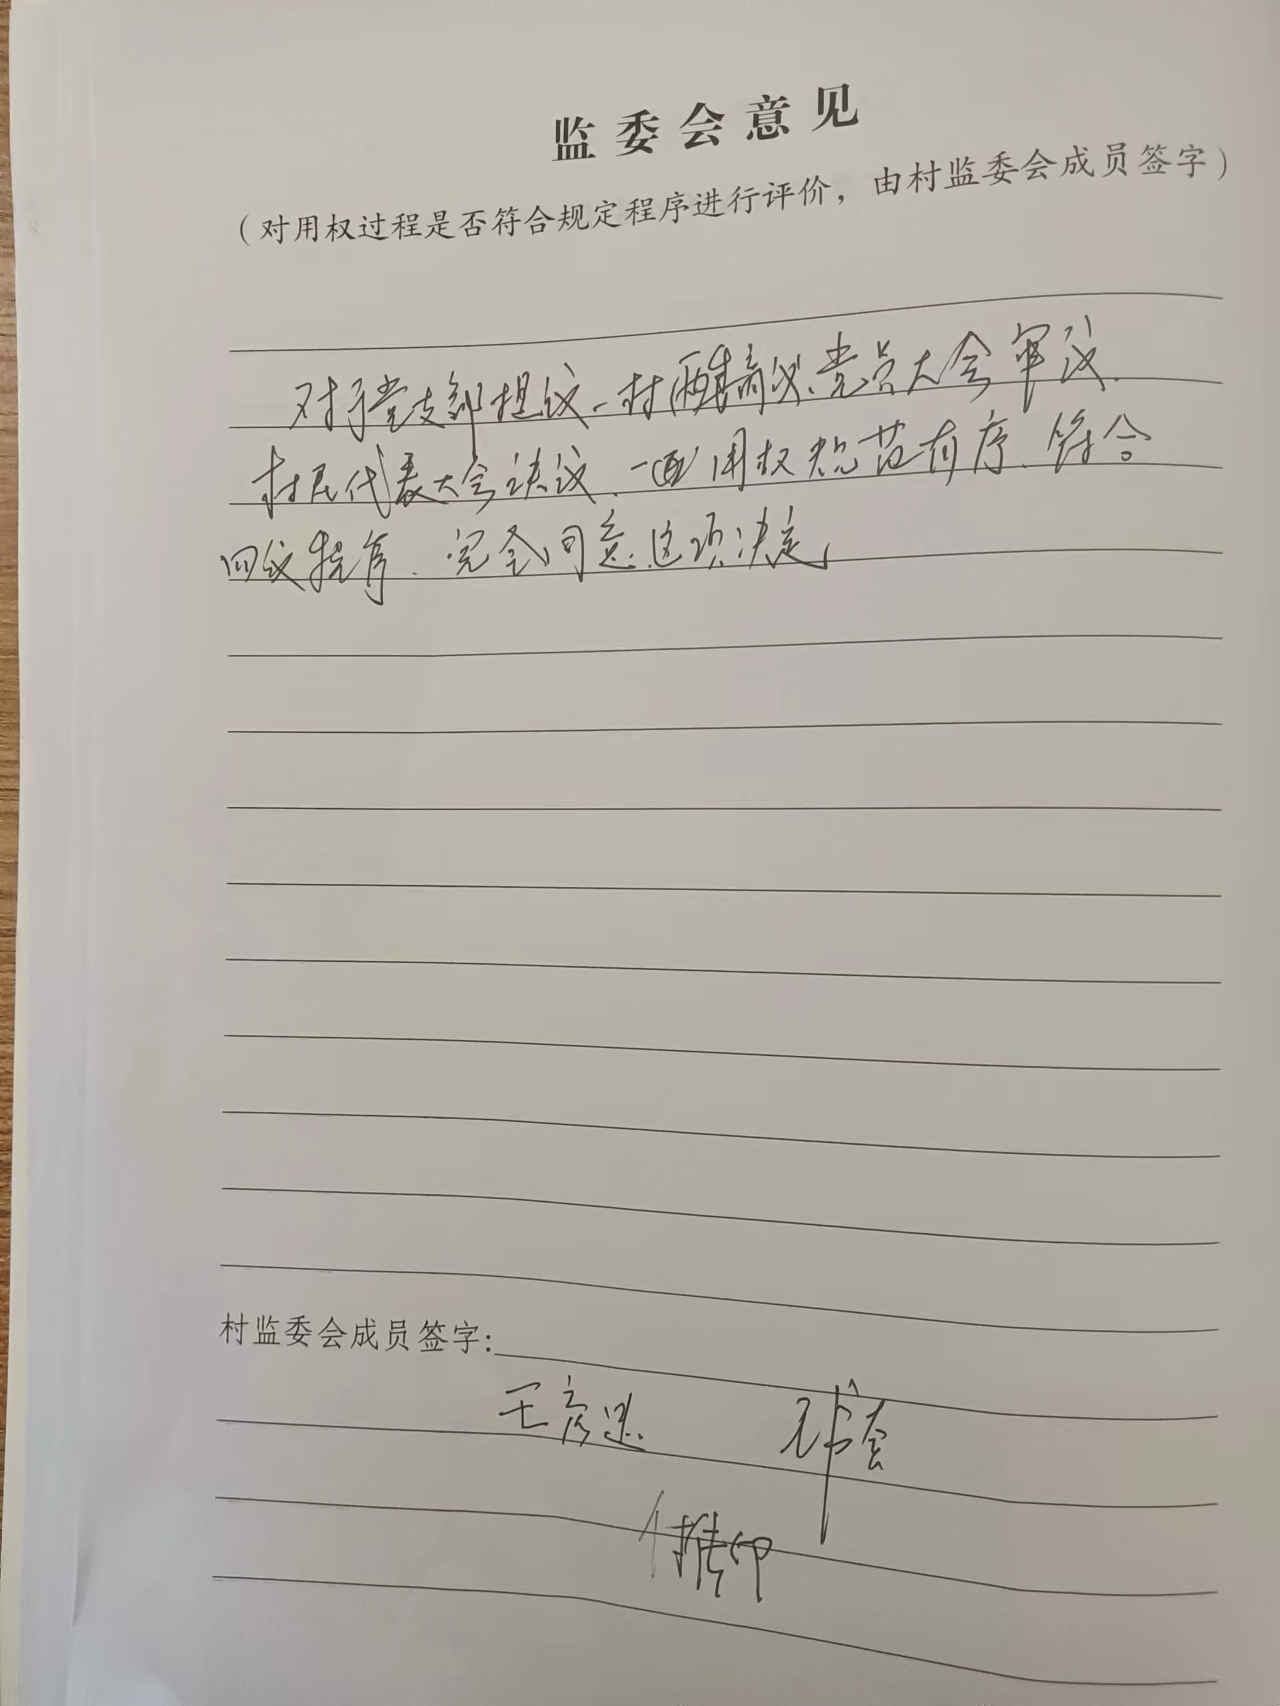 监委会意见
（对用权过程是否符合规定程序进行评价，由村监委会成员签字）
对于党支部提议、村两委商议、党员大会审议、
村民代表大会决议、一致用权规范有序、符合
四议程序、完全同意这项决定
村监委会成员签字：
王彦